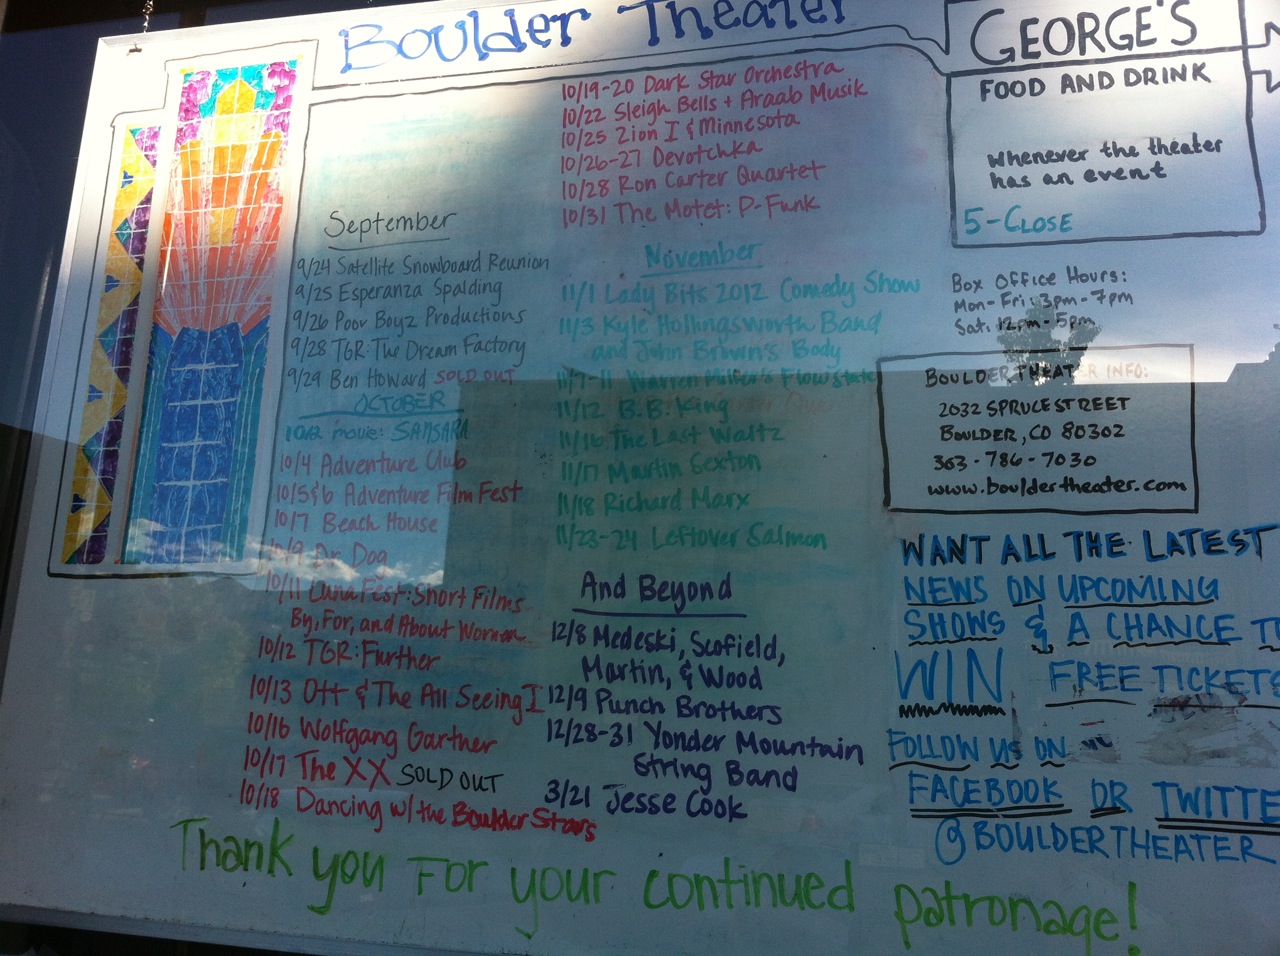 Boulder Theater
September
9/24 Satellite Snowboard Reunion
9/25 Esperanza Spalding
9/26 Poor Boyz Productions
9/28 TGR: The Dream Factory
9/29 Ben Howard SOLD OUT
OCTOBER
movie: SAMSARA
10/4 Adventure Club
10/5&6 Adventure Film Fest
10/7 Beach House
10/9 Dr Dog
10/11 Luna Fest: Short Films
By, For, and About Women
10/12 TGR: Further
10/13 Ott & The All Seeing I
10/16 Wolfgang Gartner
10/17 The XX SOLD OUT
10/18 Dancing w/ the Boulder Stars
10/19-20 Dark Star Orchestra
10/22 Sleigh Bells + Araab Musik
10/25 Zion I & Minnesota
10/26-27 Devotchka
10/28 Ron Carter Quartet
10/31 The Motet: P-Funk
November
11/1 Lady Bits 2012 Comedy Show
11/3 Kyle Hollingsworth Band
and John Brown's Body
11/7-11 Warren Miller's Flow State
11/12 B.B. King
11/16 The Last Waltz
11/17 Martin Sexton
11/18 Richard Marx
11/23-24 Leftover Salmon
And Beyond
12/8 Medeski, Scofield,
Martin, & Wood
12/9 Punch Brothers
12/28-31 Yonder Mountain
String Band
3/21 Jesse Cook
GEORGE'S
FOOD AND DRINK
whenever the theater
has an event
5-CLOSE
Box Office Hours:
Mon-Fri: 3pm-7pm
Sat: 12pm-5pm
BOULDER THEATER INFO:
2032 SPRUCE STREET
BOULDER, CO 80302
303-786-7030
www.bouldertheater.com
WANT ALL THE LATEST
NEWS ON UPCOMING
SHOWS & A CHANCE TO
WIN FREE TICKETS
FOLLOW US ON
FACEBOOK OR TWITTE
@BOULDERTHEATER
Thank you For your continued patronage!